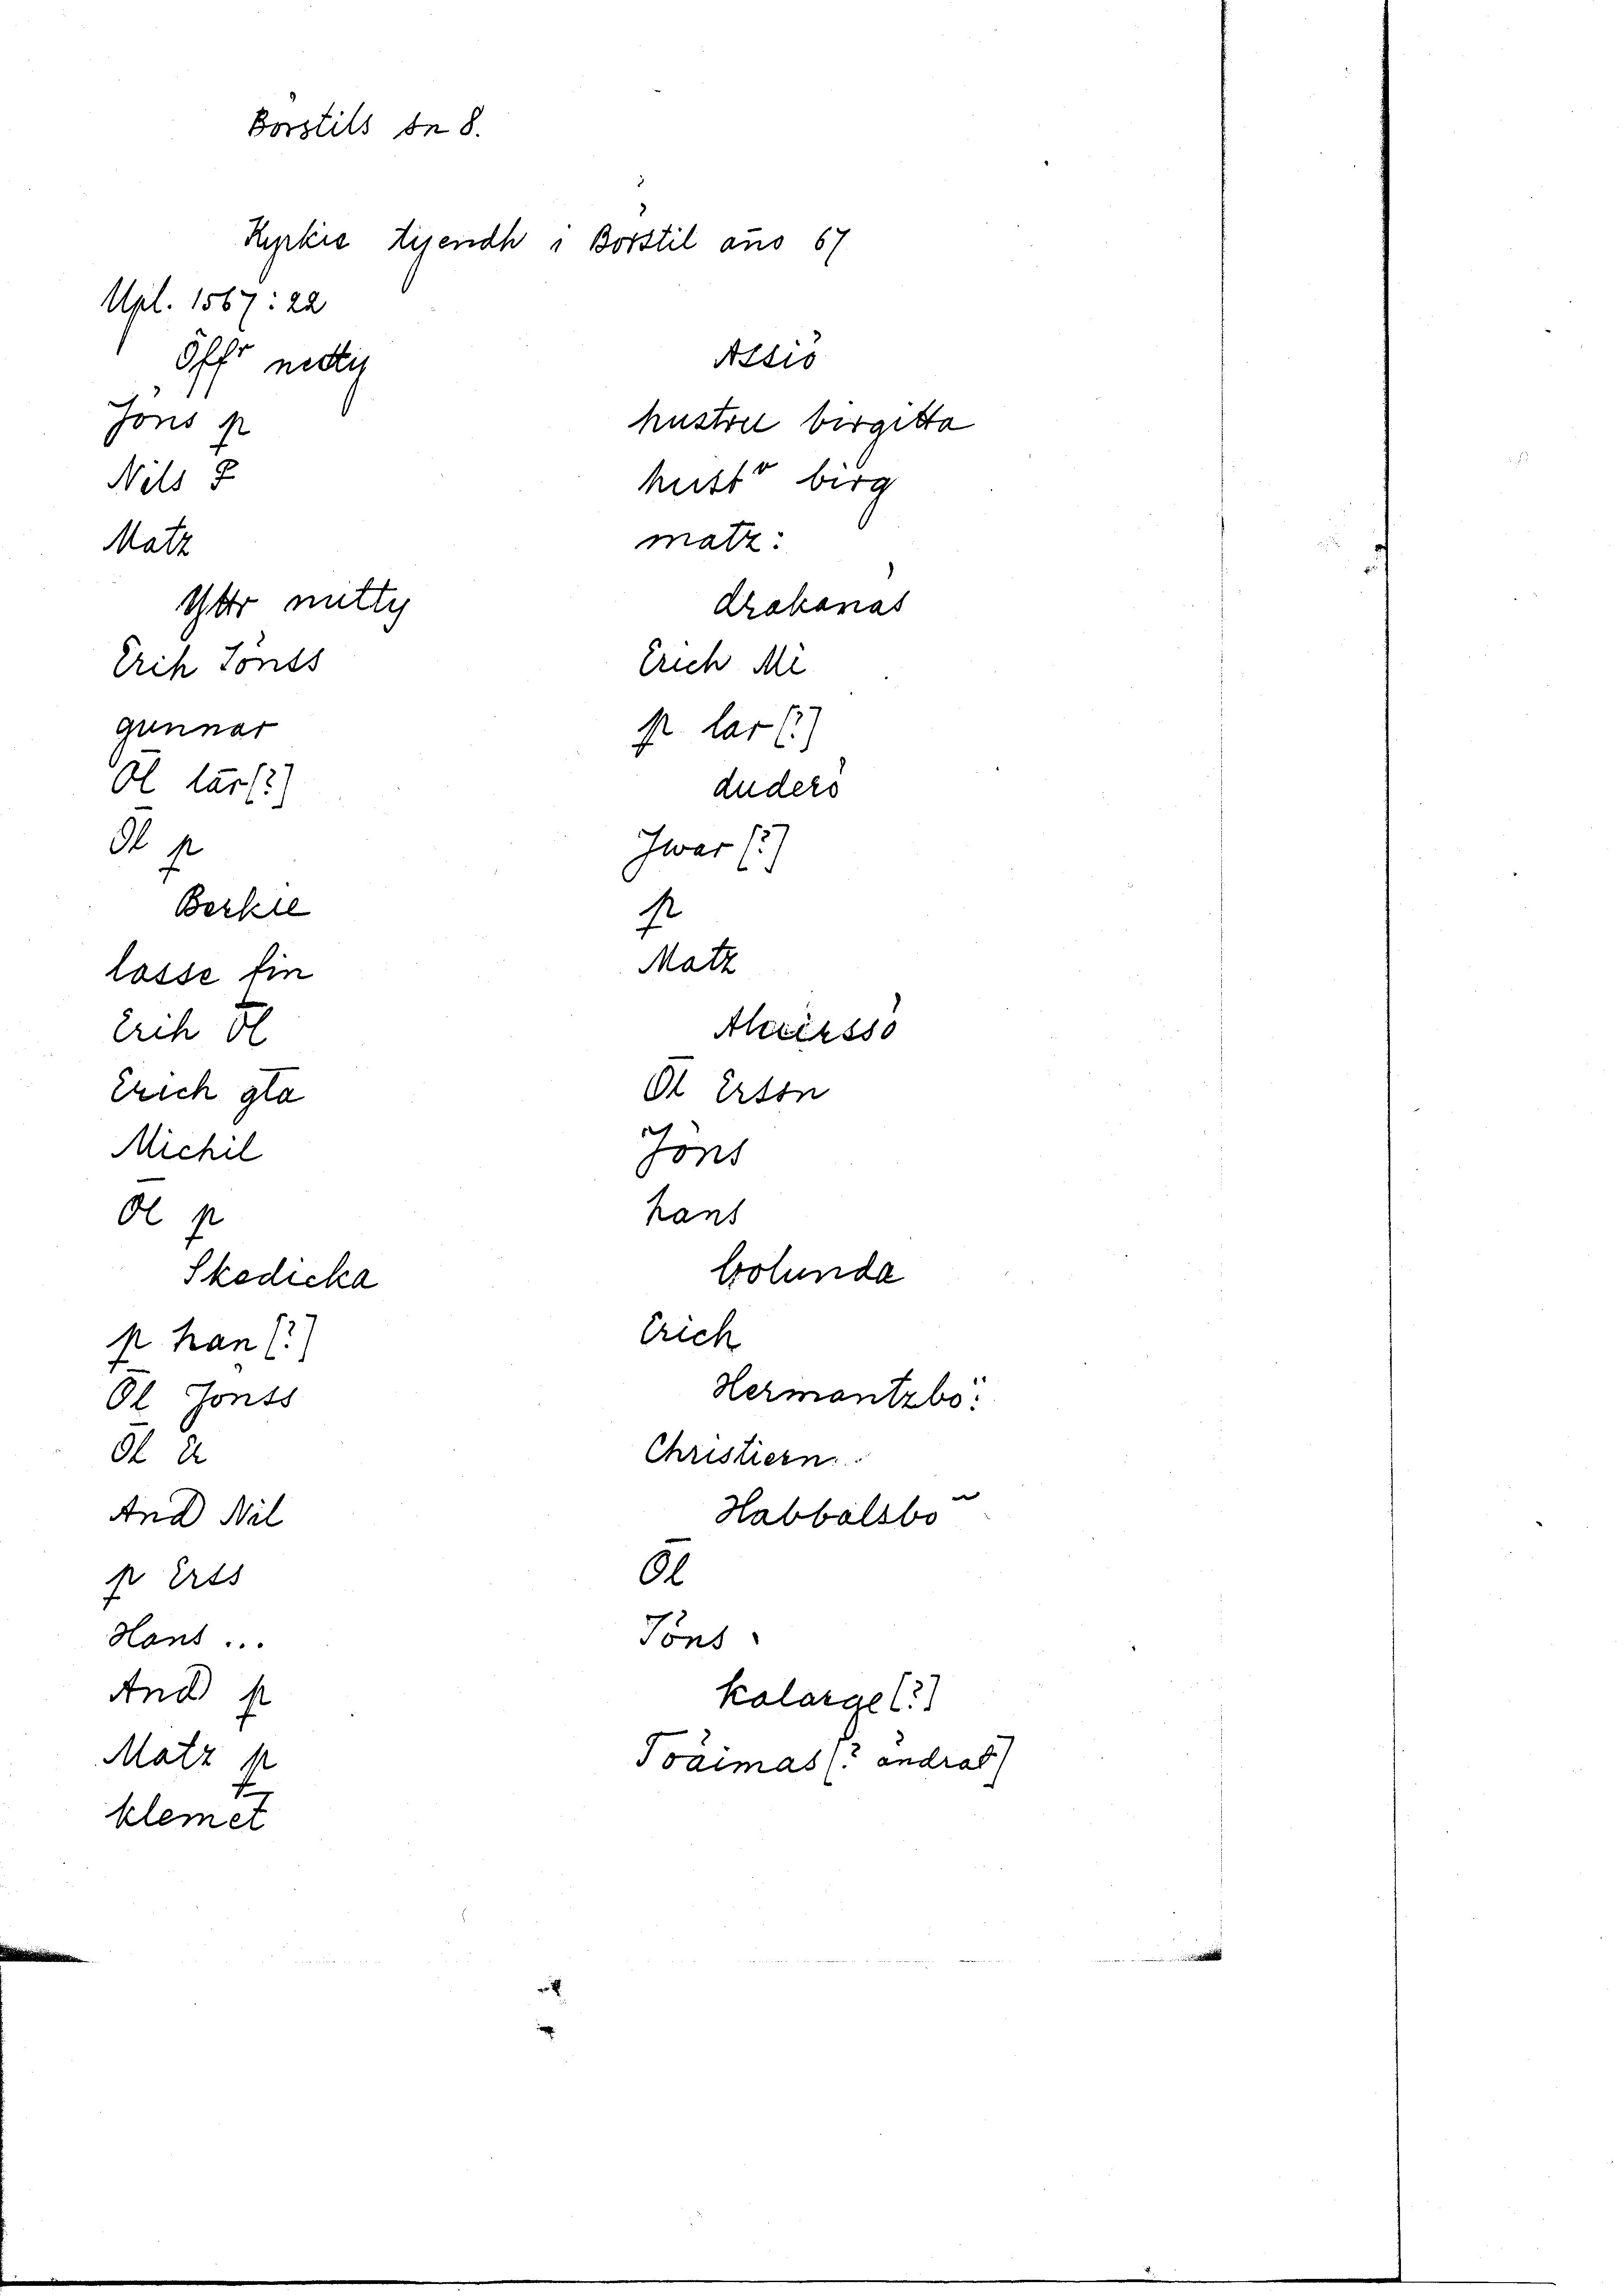 Börstils sn 8.
Kyrkie tijendh i Börstil año 67
Upl. 1567:22
Öffr netty
Jöns p
Nils
Matz
Yttr nutty
Erih Jönss
gunnar
Ōl lār[?]
Ōl p
Berkie
lasse fin
Erih Ōl
Erich gta
Michil
Ōl p
Skedicka
p han[?]
Ōl Jönss
Ōl Er
And Nil
p Erss
Hans ...
And p
Matz p
klemet
Assiö
hustru birgitta
hustr birg
matz:
drakanäs
Erich Mi
p lar[?]
duderö
Jwar[?]
p
Matz
Ōl Erson
Jöns
hans
bolunda
Erich
Hermantzbo:
Christiern
Habbalsbo
Ōl
Jöns
kalarge[?]
Toäimas[? ändrat]